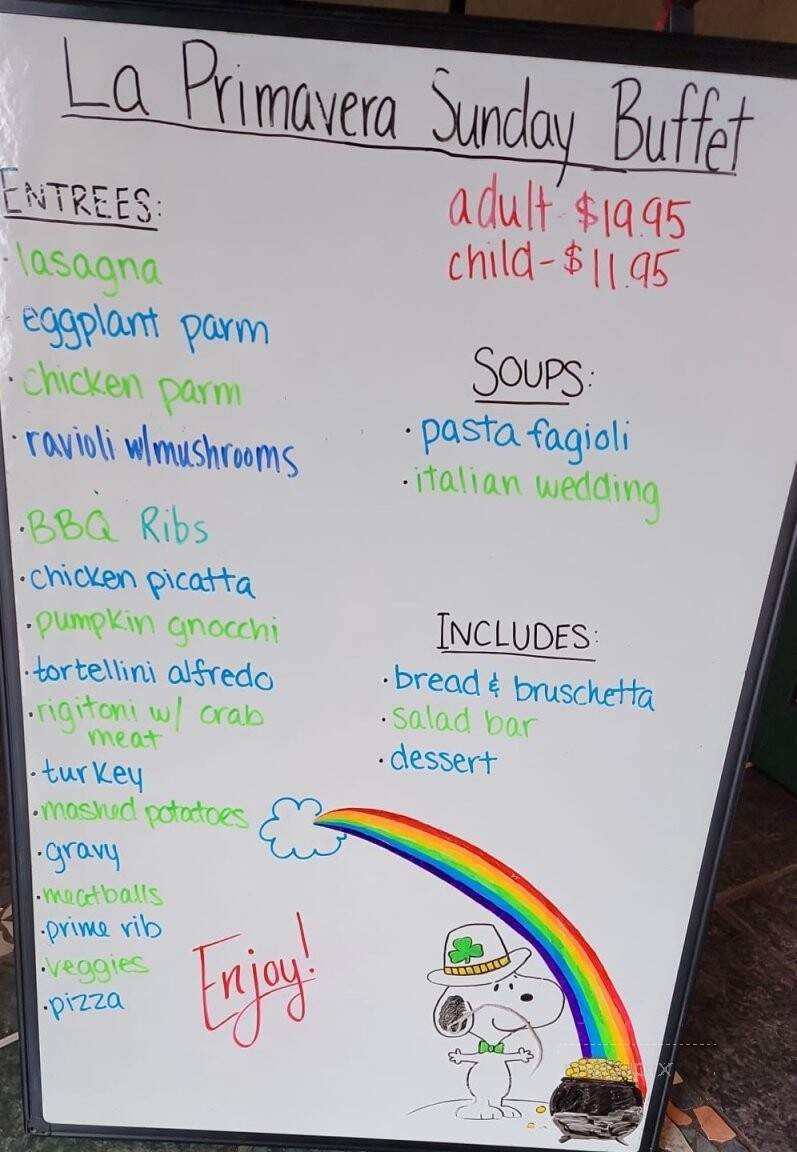 La Primavera Sunday Buffet
adult - $19.95
child - $11.95
ENTREES:
· lasagna
eggplant parm
· chicken parm
· ravioli w/mushrooms
· BBQ Ribs
· chicken picatta
· pumpkin gnocchi
· tortellini alfredo
· rigitoni w/ crab
meat
· turkey
· mashed potatoes
· gravy
· meatballs
· prime rib
· veggies
· pizza
SOUPS:
· pasta fagioli
· italian wedding
INCLUDES:
· bread & bruschetta
· salad bar
· dessert
Enjoy!